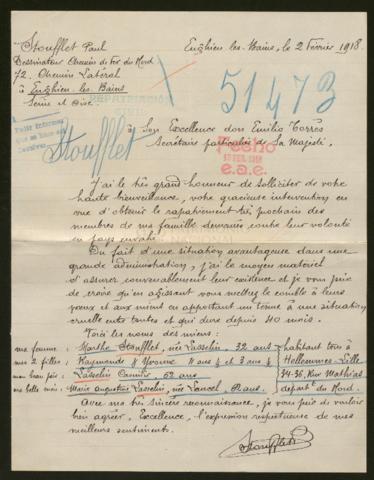 Stoufflet Paul
Enghien les-Bains, le 2 Février 1918
Dessinateur Chemin de fer du Nord
72. Chemin Latéral
à Enghien les Bains
Seine et Oise.
51473
Stoufflet
à Son Excellence don Emilio Torrès
Secrétaire particulier de Sa Majesté.
Fecho
e.a.e.
J'ai le très grand honneur de solliciter de votre
haute bienveillance, votre gracieuse intervention en
vue d'obtenir le rapatriement très prochain des
membres de ma famille demeurés contre leur volonté
en pays envahi.
Du fait d'une situation avantageuse dans une
grande administration, j'ai le moyen matériel
d'assurer convenablement leur existence et je vous prie
de croire qu'en agissant vous mettrez le comble à leurs
voeux et aux miens en apportant un terme à une situation
cruelle entre toutes et qui dure depuis 40 mois.
Voici les noms des miens:
ma femme: Marthe Stoufflet, née Lasselin, 32 ans
habitant tous à
mes 2 filles: Raymonde & Yvonne 11 ans ½ et 3 ans ½
Hellemmes-Lille
mon beau père: Lasselin Camille 62 ans
34-36, Rue Mathias
ma belle mère: Marie Augustine Lasselin, née Lancel, ans
départt du Nord.
Avec ma très sincère reconnaissance, je vous prie de vouloir
bien agréer, Excellence, l'expression respectueuse de mes
meilleurs sentiments.
Stoufflet